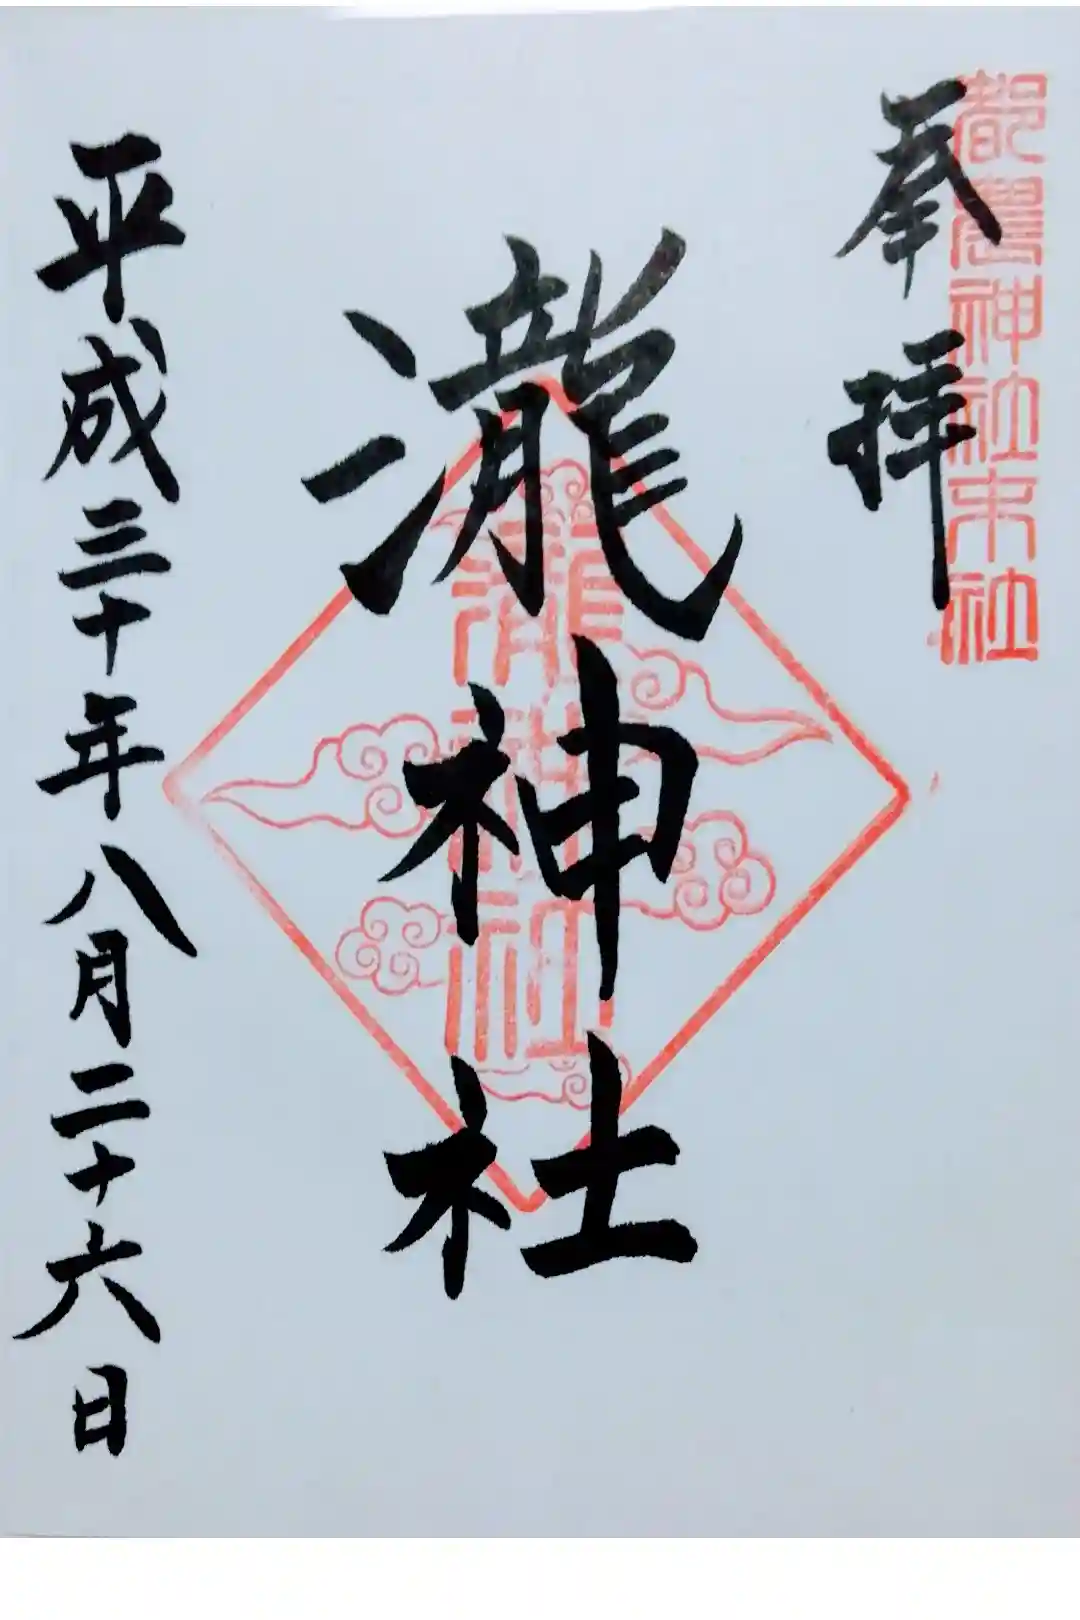 都農神社末社
奉拝
瀧神社
瀧神社
平成三十年八月二十六日